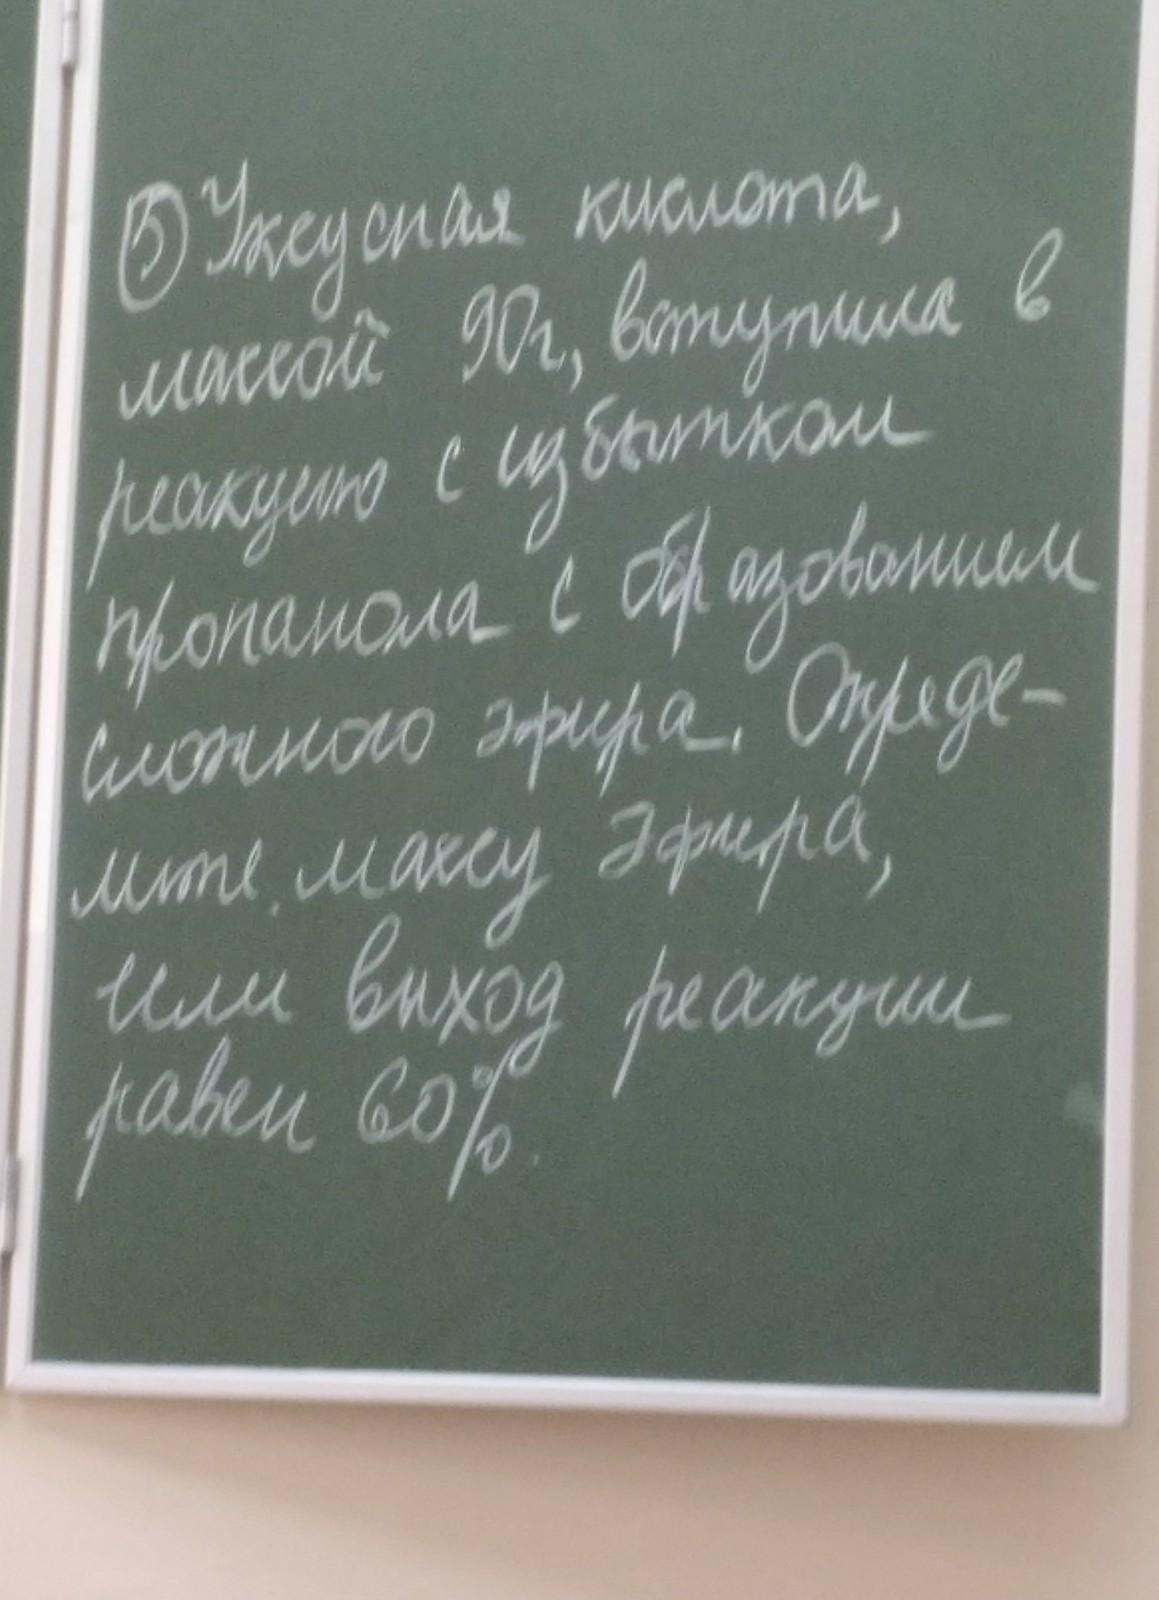 ⑤ Уксусная кислота,
массой 90г, вступила в
реакцию с избытком
пропанола с образованием
сложного эфира. Опреде-
лите массу эфира,
если выход реакции
равен 60%.